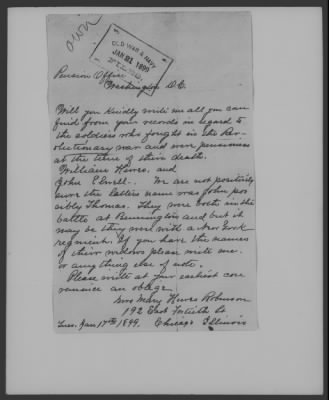 OLD WAR & NAVY
JAN 21 1899
Pension Office
Washington D.C.
Will you kindly write me all you can
find from your records in regard to
the soldiers who fought in the Rev-
olutionary war and were pensioners
at the time of their death.
William Hewes. and
John Elwell. We are not positively
sure the latters name was John pos
sibly Thomas. They were both in the
battle at Bennington and but it
may be they were with a New York
regiment. If you have the names
of their widows please write me.
or anything else of note.
Please write at your earliest con
venience an oblige
Mrs Mary Hewes Robinson
192 East Fortieth St
Tues. Jan 17th 1899. Chicago Illinois